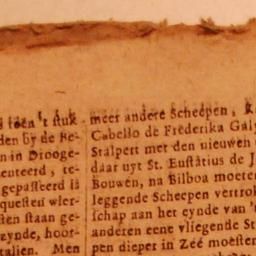 toen 't stuk
den by de Re-
n in Drooge-
enteerd, te-
gepasseerd is
questen wier-
sten staan ge-
zynde, hoor-
talien. Men
meer andere Scheepen,
Cabello de Frederika
Stalpert met den nieuwen
daar uyt St. Eustatius de J
Bouwen, na Bilboa moeten
leggende Scheepen vertrok
schap aan het eynde van
anderen eene vliegende St
pen dieper in Zeé moesten